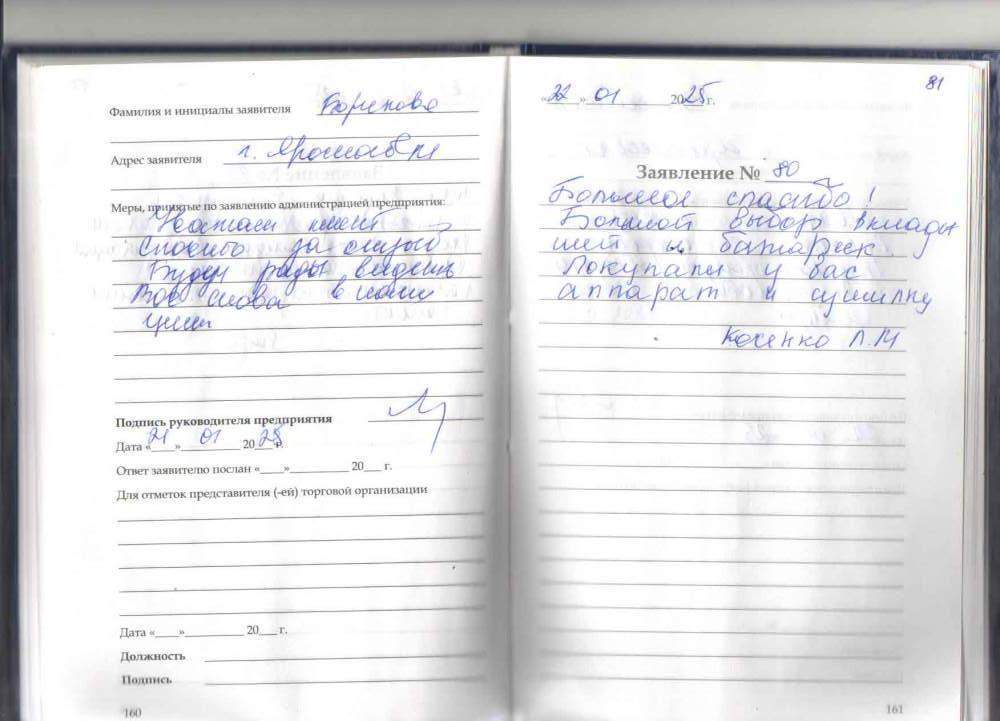 Фамилия и инициалы заявителя Борисова
Адрес заявителя г. Ярославль
Меры, принятые по заявлению администрацией предприятия:
Спасибо за
Будем рады видеть
Вас снова в нашем
Подпись руководителя предприятия
Дата «21» 01 2025 г.
Ответ заявителю послан «___»__________ 20___ г.
Для отметок представителя (-ей) торговой организации
Дата «____»__________ 20___ г.
Должность
Подпись
160
81
«22» 01 2025г.
Заявление № 80
Большое спасибо!
Большой выбор вклады
шей и батареек
Покупали у вас
аппарат и сушилку
Косенко Л.М
161